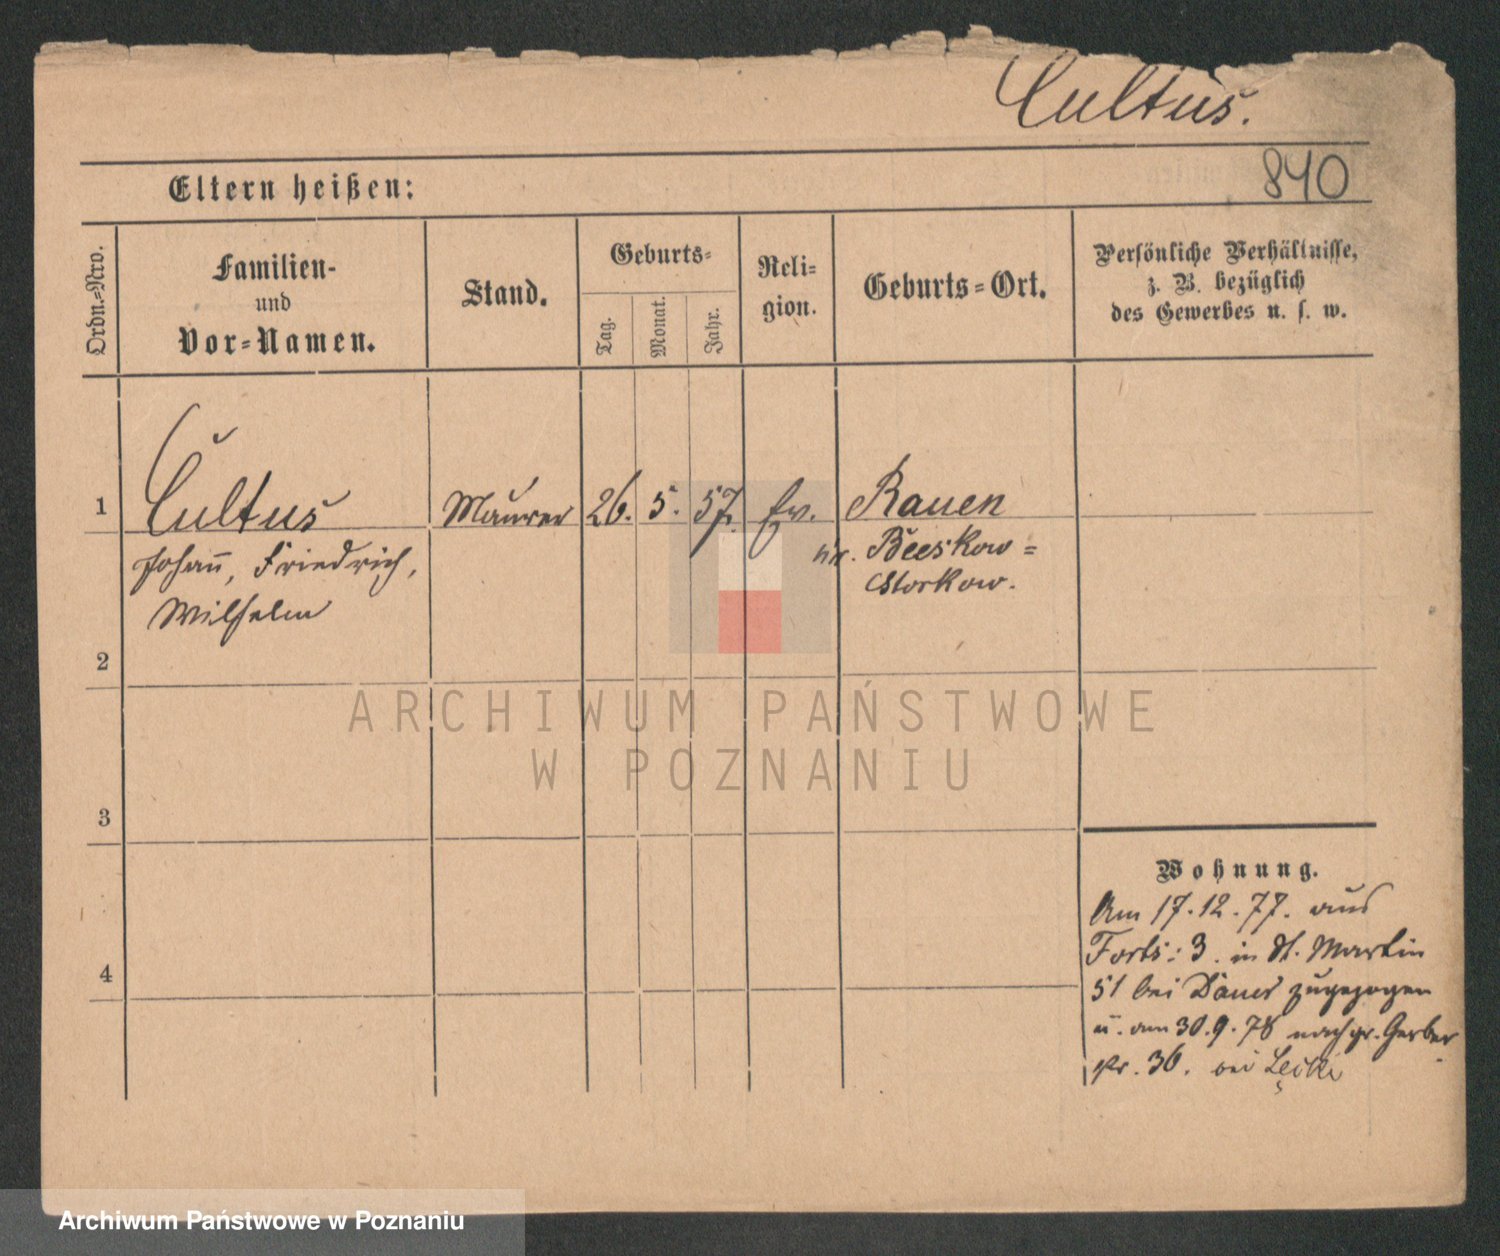 Cultus.
840
Eltern heißen:
Ordn.-Nro.
Familien-
und
Vor-Namen.
Stand.
Geburts-
Tag.
Monat.
Jahr.
Reli-
gion.
Geburts-Ort.
Persönliche Verhältnisse,
z. B. bezüglich
des Gewerbes u. s. w.
1 Cultus Maurer 26. 5. 57. Ev. Rauen
Johann, Friedrich, Kr. Beeskow=
Wilhelm Storkow.
2
ARCHIWUM PAŃSTWOWE
W POZNANIU
3
Wohnung.
Am 17.12.77. aus
Forts: 3. in St. Martin
4
51 bei Dauer zugezogen
u. am 30.9.78 nach gr. Gerber
36. bei
Archiwum Państwowe w Poznaniu